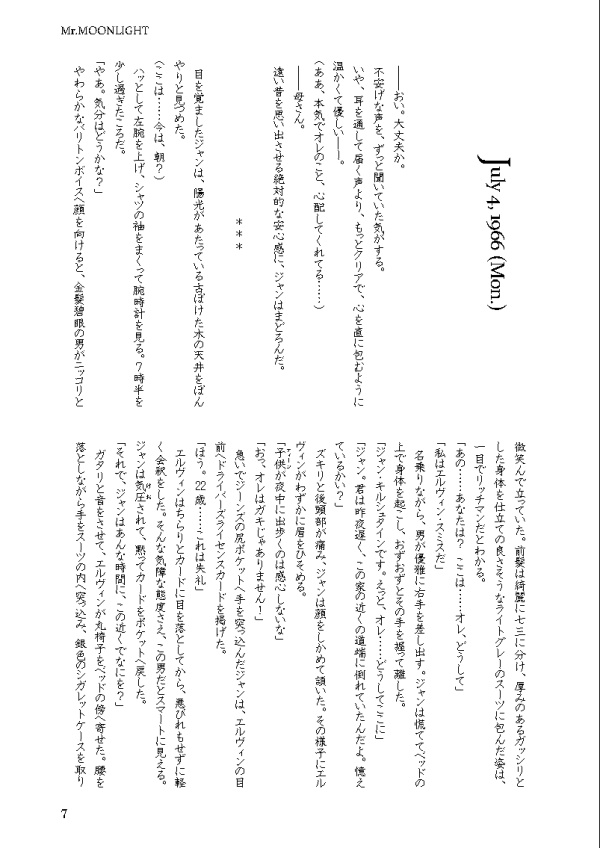 Mr.MOONLIGHT
July 4, 1966 (Mon.)
――おい。大丈夫か。
不安げな声を、ずっと聞いていた気がする。
いや、耳を通して届く声より、もっとクリアで、心を直に包むように
温かくて優しい――。
（ああ、本気でオレのこと、心配してくれてる……）
――母さん。
遠い昔を思い出させる絶対的な安心感に、ジャンはまどろんだ。
＊＊＊
目を覚ましたジャンは、陽光があたっている古ぼけた木の天井をぼん
やりと見つめた。
（ここは……今は、朝？）
ハッとして左腕を上げ、シャツの袖をまくって腕時計を見る。７時半を
少し過ぎたころだ。
「やあ。気分はどうかな？」
やわらかなバリトンボイスへ顔を向けると、金髪碧眼の男がニッコリと
微笑んで立っていた。前髪は綺麗に七三に分け、厚みのあるガッシリと
した身体を仕立ての良さそうなライトグレーのスーツに包んだ姿は、
一目でリッチマンだとわかる。
「あの……あなたは？ ここは……オレ、どうして」
「私はエルヴィン・スミスだ」
名乗りながら、男が優雅に右手を差し出す。ジャンは慌ててベッドの
上で身体を起こし、おずおずとその手を握って離した。
「ジャン・キルシュタインです。えっと、オレ……どうしてここに」
「ジャン。君は昨夜遅く、この家の近くの道端に倒れていたんだよ。憶え
ているかい？」
ズキリと後頭部が痛み、ジャンは顔をしかめて頷いた。その様子にエル
ヴィンがわずかに眉をひそめる。
「子供が夜中に出歩くのは感心しないな」
「おっ、オレはガキじゃありません！」
急いでジーンズの尻ポケットへ手を突っ込んだジャンは、エルヴィンの目
前へドライバーズライセンスカードを掲げた。
「ほう。22歳……これは失礼」
エルヴィンはちらりとカードに目を落としてから、悪びれもせずに軽
く会釈をした。そんな気障な態度さえ、この男だとスマートに見える。
ジャンは気圧されて、黙ってカードをポケットへ戻した。
「それで、ジャンはあんな時間に、この近くでなにを？」
ガタリと音をさせて、エルヴィンが丸椅子をベッドの傍へ寄せた。腰を
落としながら手をスーツの内へ突っ込み、銀色のシガレットケースを取り
7